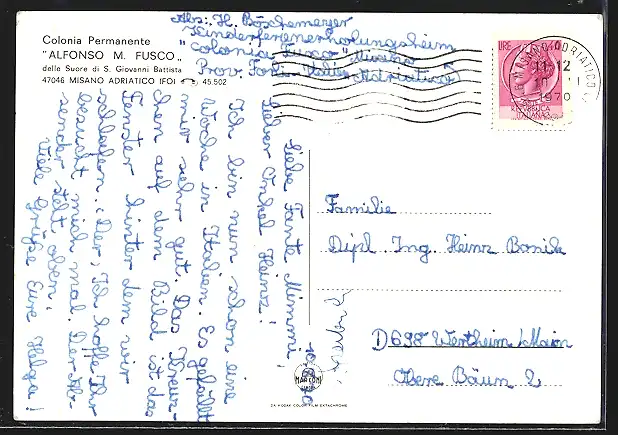 Colonia Permanente
"ALFONSO M. FUSCO"
delle Suore di S. Giovanni Battista
47046 MISANO ADRIATICO (FO) 45.502
Abs.: H. Böschemeyer
Kinderferienerholungsheim
"Colonia Fusco" Misano
Prov. Forli Italien Adriatico
LIRE
ADRIATICO
11-12
1970
REPUBBLICA
ITALIANA
Liebe Tante Mimmi,
lieber Onkel Heinz!
Ich bin nun schon eine
Woche in Italien. Es gefällt
mir sehr gut. Das Kreuz-
chen auf dem Bild ist das
Fenster hinter dem wir
schlafen. Ich hoffe Ihr
besucht mich mal. Der Ab-
sender steht oben!
Viele Grüße Eure Helga!
Familie
Dipl. Ing. Heinz
D698 Wertheim/Main
Obere Bäun 2
MARCONI
DA KODAK COLOR FILM EKTACHROME